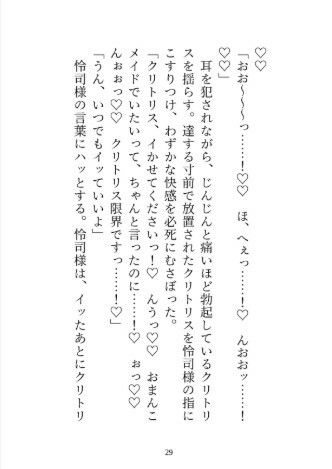 ♡♡
「おお～～～っ……！♡♡　ほ、へぇっ……！♡　んおおッ……！
♡♡」
　耳を犯されながら、じんじんと痛いほど勃起しているクリトリ
スを揺らす。達する寸前で放置されたクリトリスを怜司様の指に
こすりつけ、わずかな快感を必死にむさぼった。
「クリトリス、イかせてくださいっ！♡　んうっ♡♡　おまんこ
メイドでいたいって、ちゃんと言ったのに……！♡　ぉっ♡♡
んぉぉっ♡♡　クリトリス限界ですっ……！♡」
「うん、いつでもイッていいよ」
　怜司様の言葉にハッとする。怜司様は、イッたあとにクリトリ
29